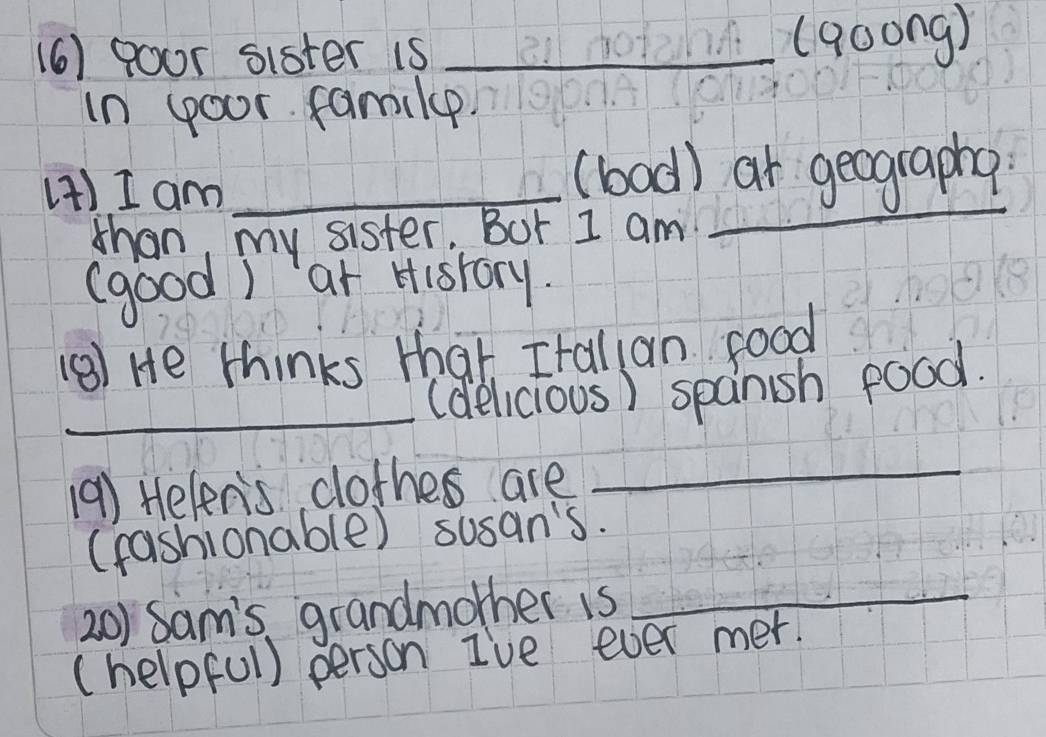 16) your sister is ____________ (young)
in your family.
17) I am ____________ (bad) at geography.
than my sister. But I am ____________
(good) at History.
18) He thinks that Italian food
____________ (delicious) spanish food.
19) Helen's clothes are ____________
(fashionable) susan's.
20) Sam's grandmother is ____________
(helpful) person I've ever met.